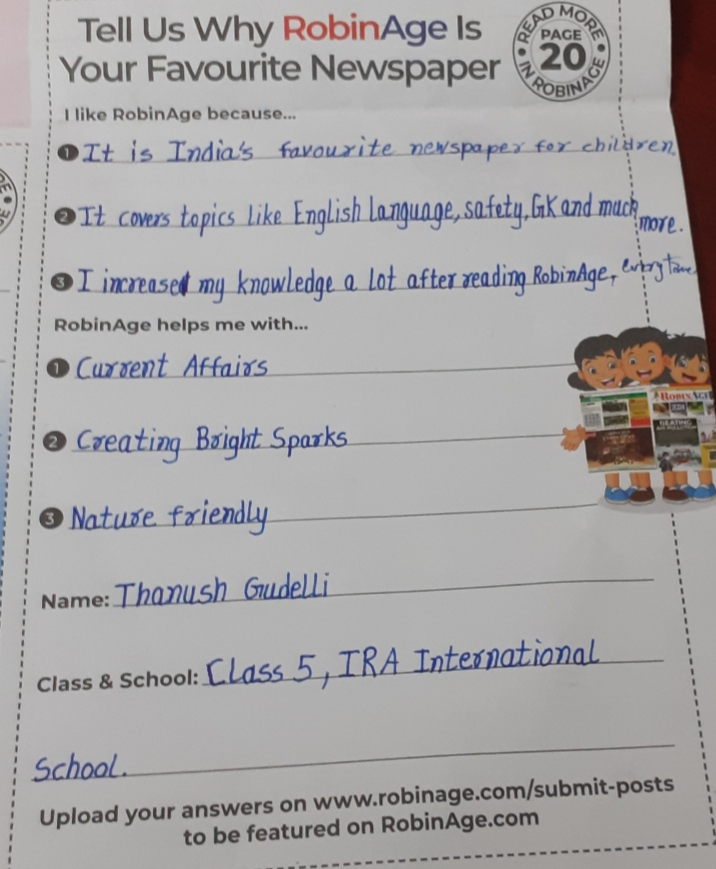 Tell Us Why RobinAge Is
Your Favourite Newspaper
READ MORE
PAGE
20
IN ROBINAGE
I like RobinAge because...
1 It is India's favourite newspaper for children.
2 It covers topics like English language, safety, GK and much
more.
3 I increased my knowledge a lot after reading RobinAge, every time.
RobinAge helps me with...
1 Current Affairs
2 Creating Bright Sparks
3 Nature friendly
ROBINAGE
Name: Thanush Gudelli
Class & School: Class 5, IRA International
School.
Upload your answers on www.robinage.com/submit-posts
to be featured on RobinAge.com